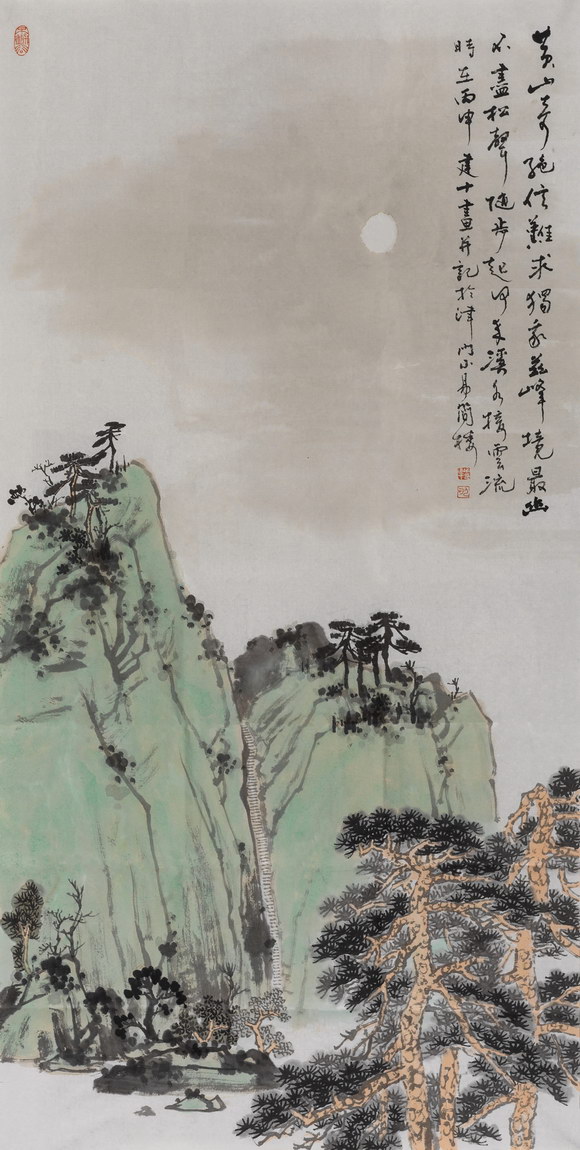 黃山奇絕信難求獨愛茲峰境最幽
不盡松聲隨步起何來溪水接雲流
時在丙申建十畫并記於津門小易簡樓